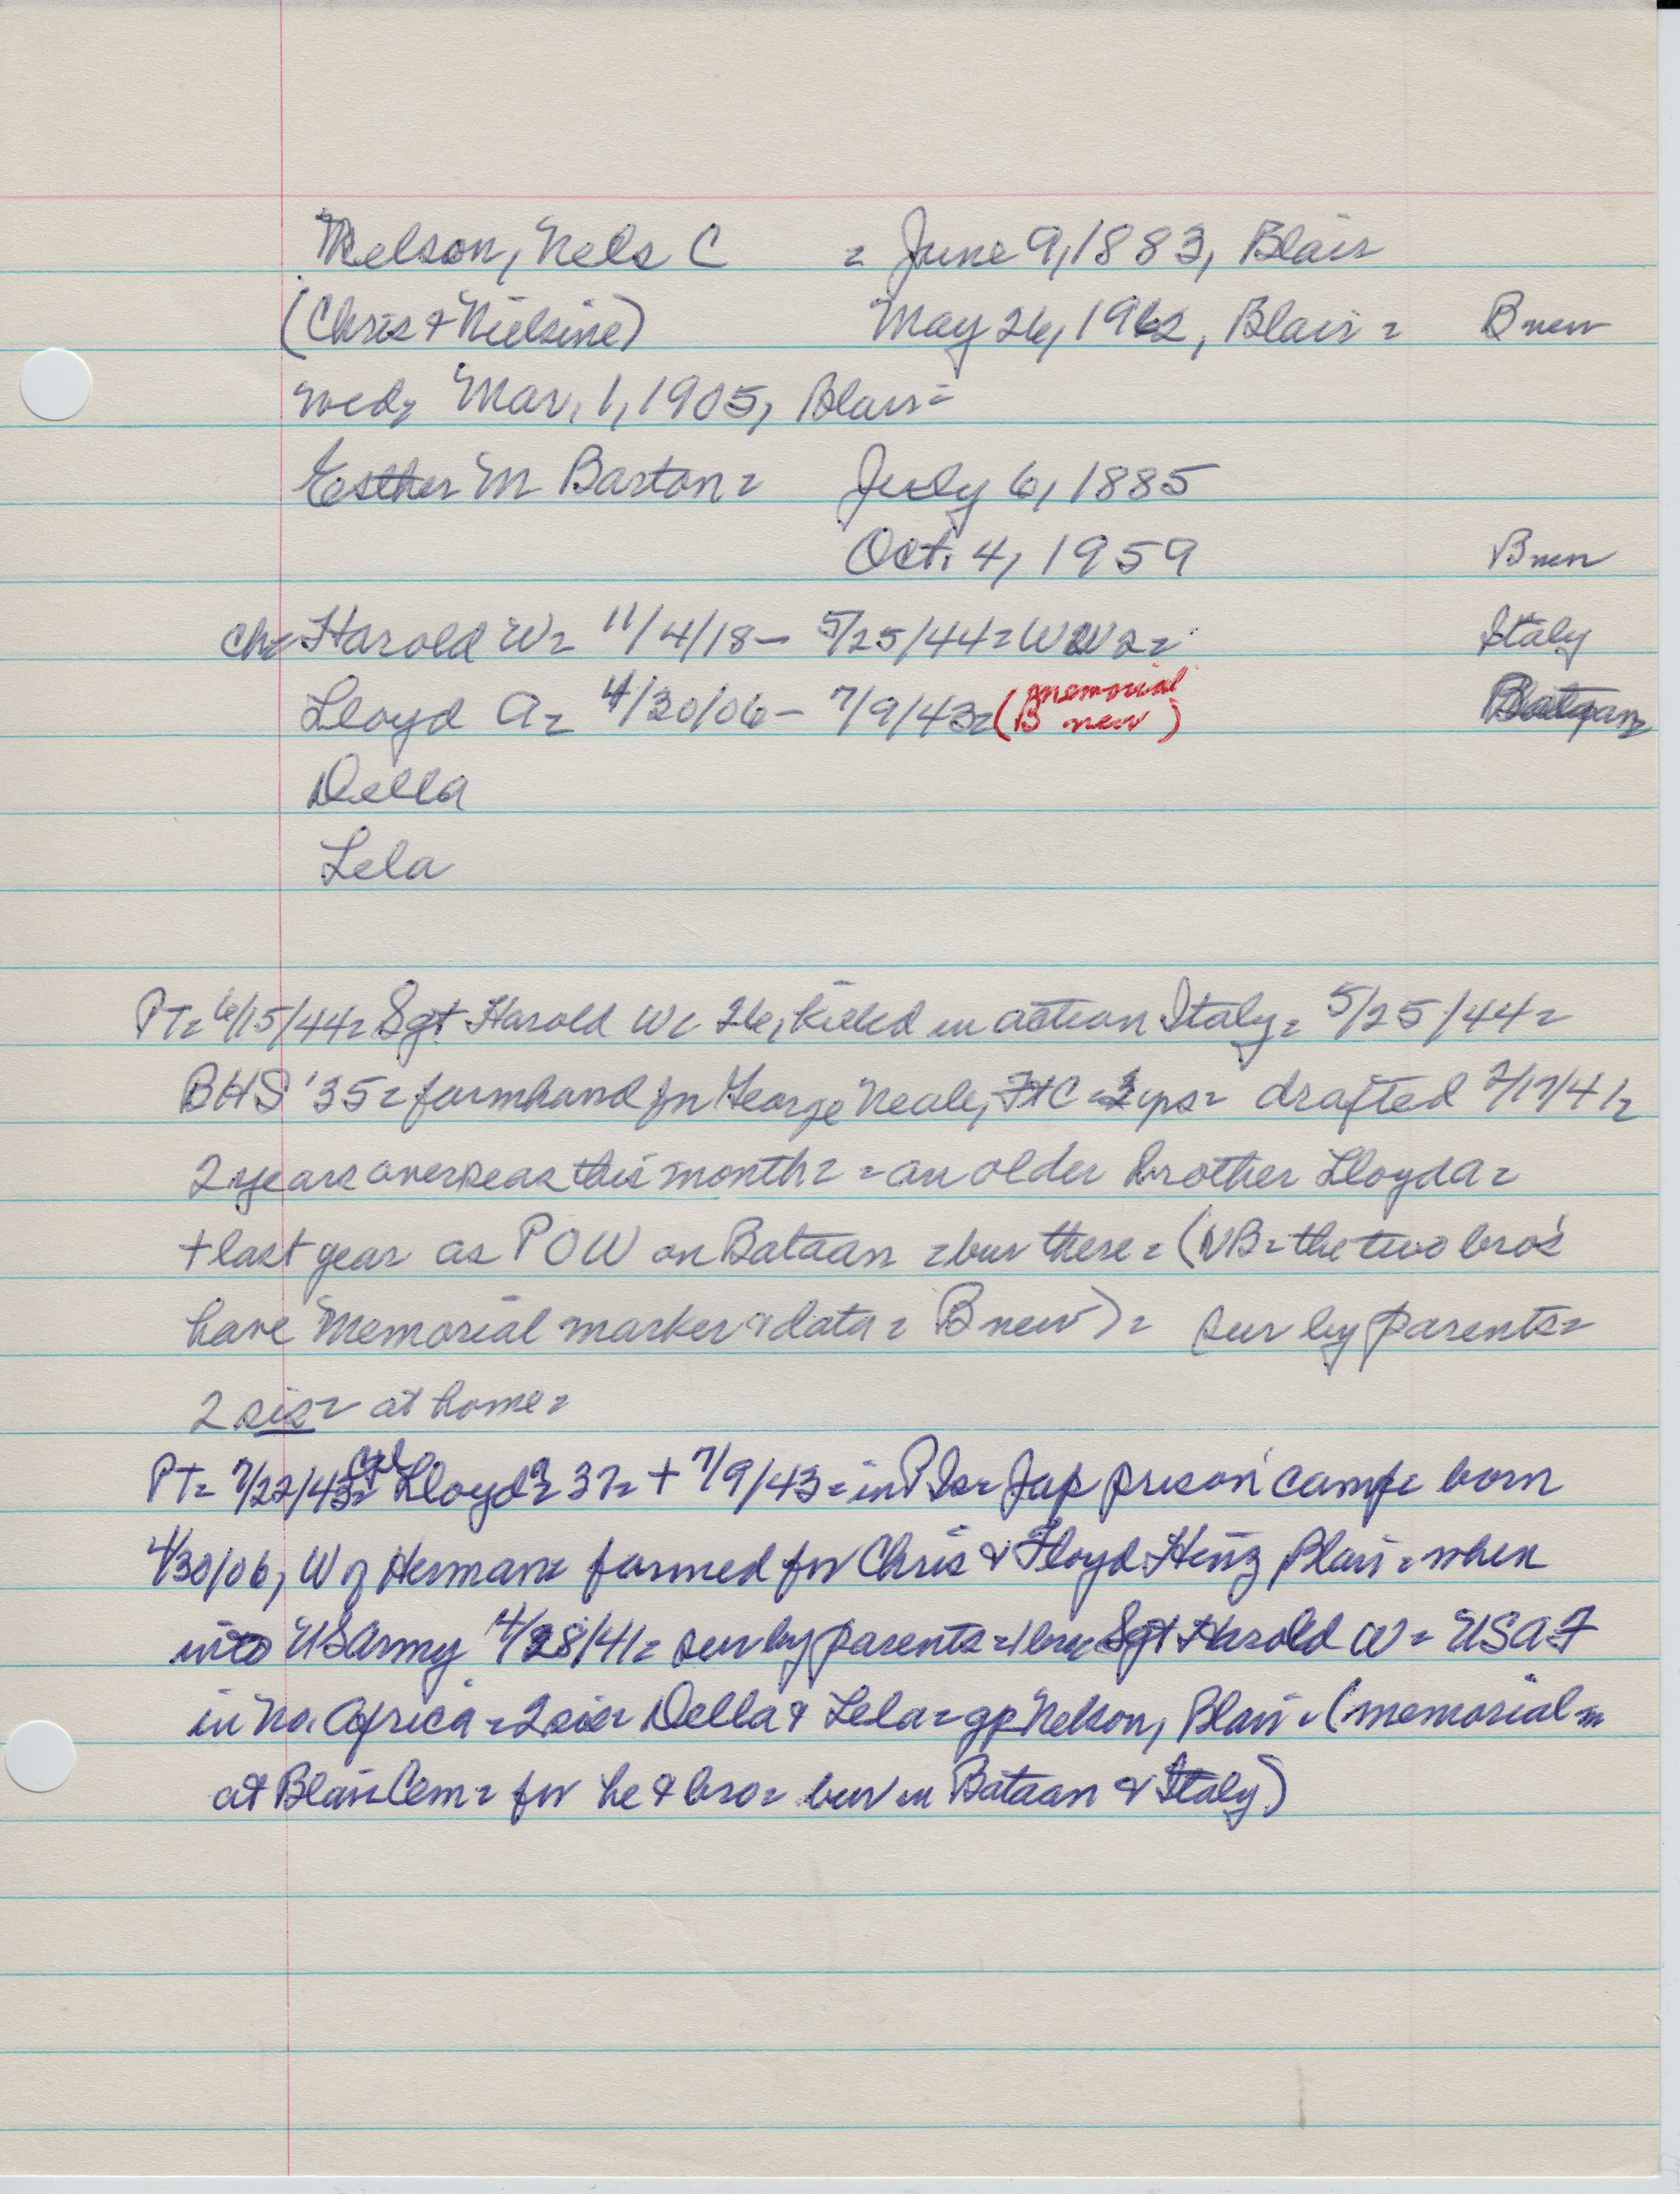 Nelson, Nels C = June 9, 1883, Blair
(Chris & Nielsine) May 26, 1962, Blair = B new
wed= Mar. 1, 1905, Blair=
Esther M Barton= July 6, 1885
Oct. 4, 1959 B new
ch= Harold W= 11/4/18 - 5/25/44=WW2= Italy
Lloyd A= 4/30/06 - 7/9/43= (memorial B new) Bataan=
Della
Lela
PT= 6/15/44= Sgt Harold W= 26, killed in action Italy= 5/25/44=
BHS '35= farmhand for George Neale, Ft C = yrs= drafted 2/17/41=
2 years overseas this month= = an older brother Lloyd A=
+ last year as POW on Bataan =bur there= (NB= the two bro's
have Memorial marker & data= B new)= sur by parents=
2 sis= at home=
PT= 7/22/43= Cpl Lloyd A= 37= + 7/9/43= in PIs= Jap prison camp= born
4/30/06, W of Herman= farmed for Chris & Floyd Hinz Blair= when
into US Army 4/28/41= sur by parents= 1 bro Sgt Harold W= USAF
in No. Africa =2 sis= Della & Lela= gp Nelson, Blair= (memorial m
at Blair Cem= for he & bro= bur in Bataan & Italy)